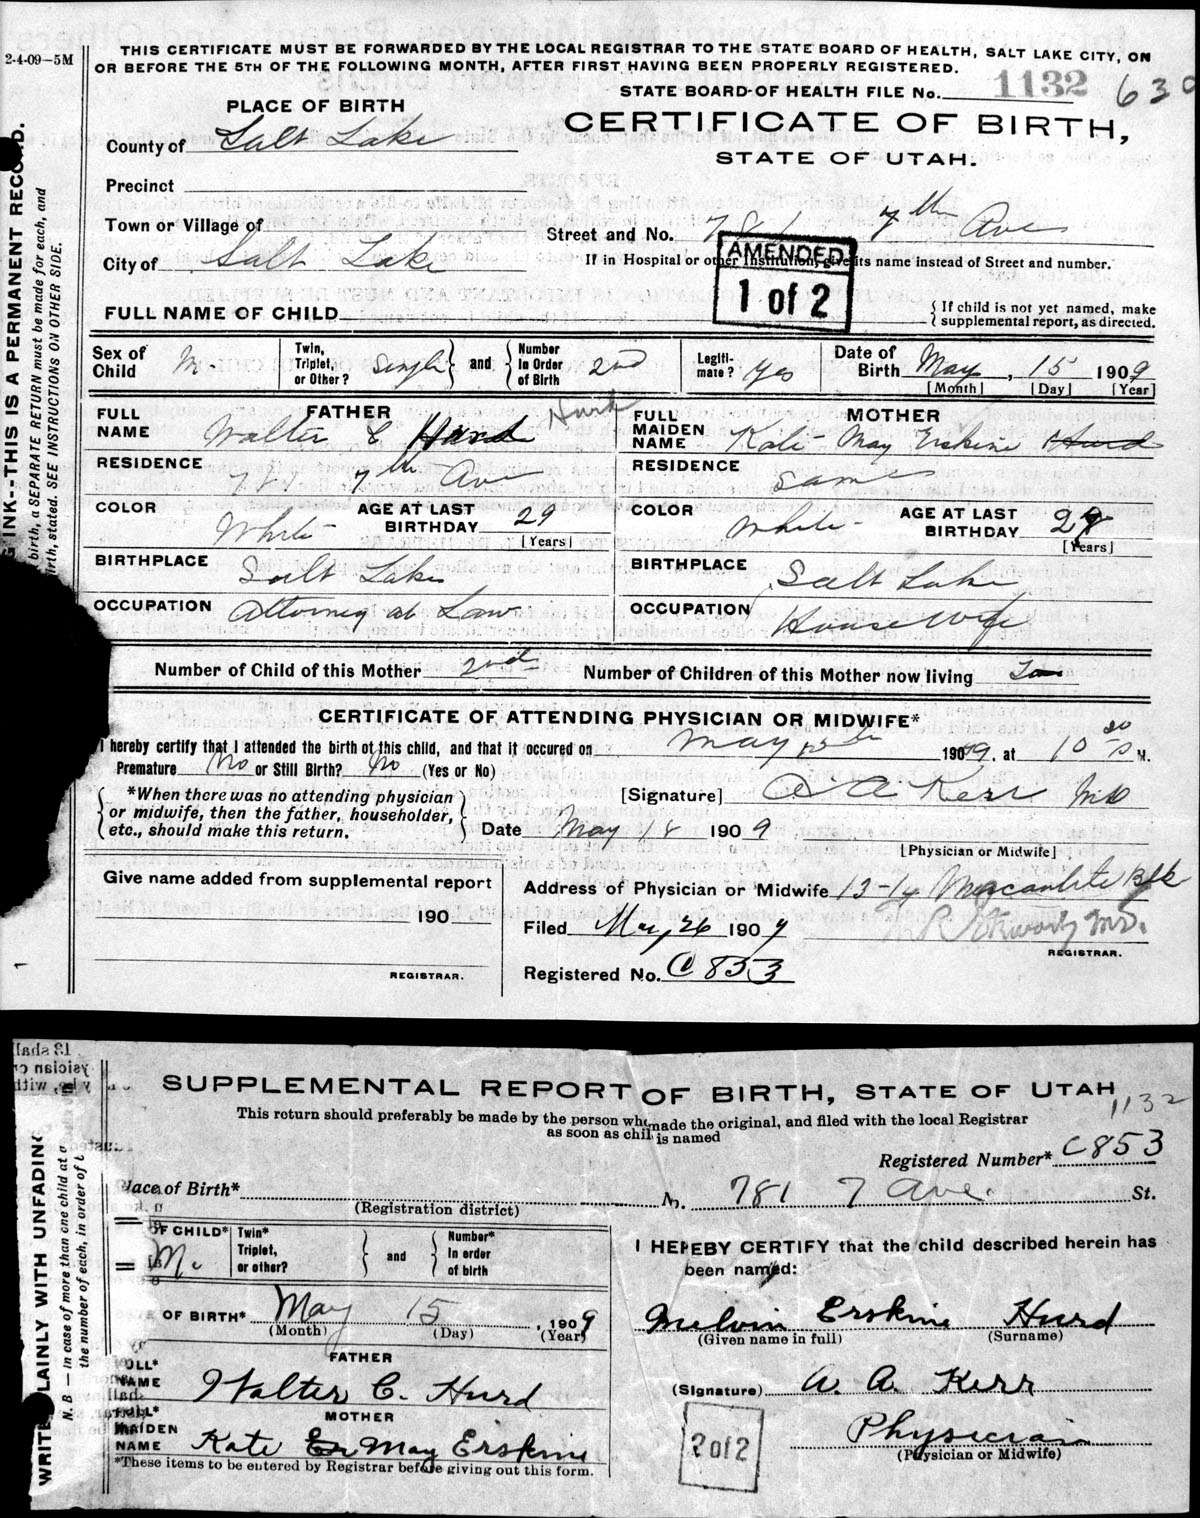 2-4-09—5M
THIS CERTIFICATE MUST BE FORWARDED BY THE LOCAL REGISTRAR TO THE STATE BOARD OF HEALTH, SALT LAKE CITY, ON
OR BEFORE THE 5TH OF THE FOLLOWING MONTH, AFTER FIRST HAVING BEEN PROPERLY REGISTERED.
STATE BOARD OF HEALTH FILE No. 1132 630
PLACE OF BIRTH
CERTIFICATE OF BIRTH,
STATE OF UTAH.
County of Salt Lake
Precinct
Town or Village of
Street and No. 781 7th Ave
City of Salt Lake
If in Hospital or other Institution, give its name instead of Street and number.
AMENDED
1 of 2
FULL NAME OF CHILD
{If child is not yet named, make
supplemental report, as directed.
Sex of Child M. Twin, Triplet, or Other? Single and Number in Order of Birth 2nd Legiti-mate? Yes Date of Birth May, 15 1909
[Month] [Day] [Year]
FATHER
FULL NAME Walter C Hurd
RESIDENCE 781 7th Ave
COLOR White AGE AT LAST BIRTHDAY 29
[Years]
BIRTHPLACE Salt Lake
OCCUPATION Attorney at Law
MOTHER
FULL MAIDEN NAME Kate May Erskine Hurd
RESIDENCE Same
COLOR White AGE AT LAST BIRTHDAY
[Years]
BIRTHPLACE Salt Lake
OCCUPATION Housewife
Number of Child of this Mother 2nd Number of Children of this Mother now living
CERTIFICATE OF ATTENDING PHYSICIAN OR MIDWIFE*
I hereby certify that I attended the birth of this child, and that it occured on May 15th 1909, at 10 M.
Premature No or Still Birth? No (Yes or No)
*When there was no attending physician
or midwife, then the father, householder,
etc., should make this return.
[Signature] A A Kerr MD
Date May 18 1909
[Physician or Midwife]
Give name added from supplemental report
190
REGISTRAR.
Address of Physician or Midwife 13-14 Mercantile Blk
Filed May 26 1909
REGISTRAR.
Registered No. C853
ING INK--THIS IS A PERMANENT RECORD.
birth, a SEPARATE RETURN must be made for each, and
birth, stated. SEE INSTRUCTIONS ON OTHER SIDE.
SUPPLEMENTAL REPORT OF BIRTH, STATE OF UTAH
1132
This return should preferably be made by the person who made the original, and filed with the local Registrar
as soon as child is named
Registered Number* C853
Place of Birth* No. 781 7 Ave. St.
(Registration district)
OF CHILD* M. Twin* Triplet, or other? and Number* In order of birth
I HEREBY CERTIFY that the child described herein has
been named:
OF BIRTH* May 15, 1909
(Month) (Day) (Year)
Melvin Erskine Hurd
(Given name in full) (Surname)
FATHER
FULL* NAME Walter C. Hurd
(Signature) A. A. Kerr
MOTHER
FULL* MAIDEN NAME Kate May Erskine
Physician
(Physician or Midwife)
2 of 2
*These items to be entered by Registrar before giving out this form.
WRITE PLAINLY WITH UNFADING
N. B — In case of more than one child at a
the number of each, in order of b